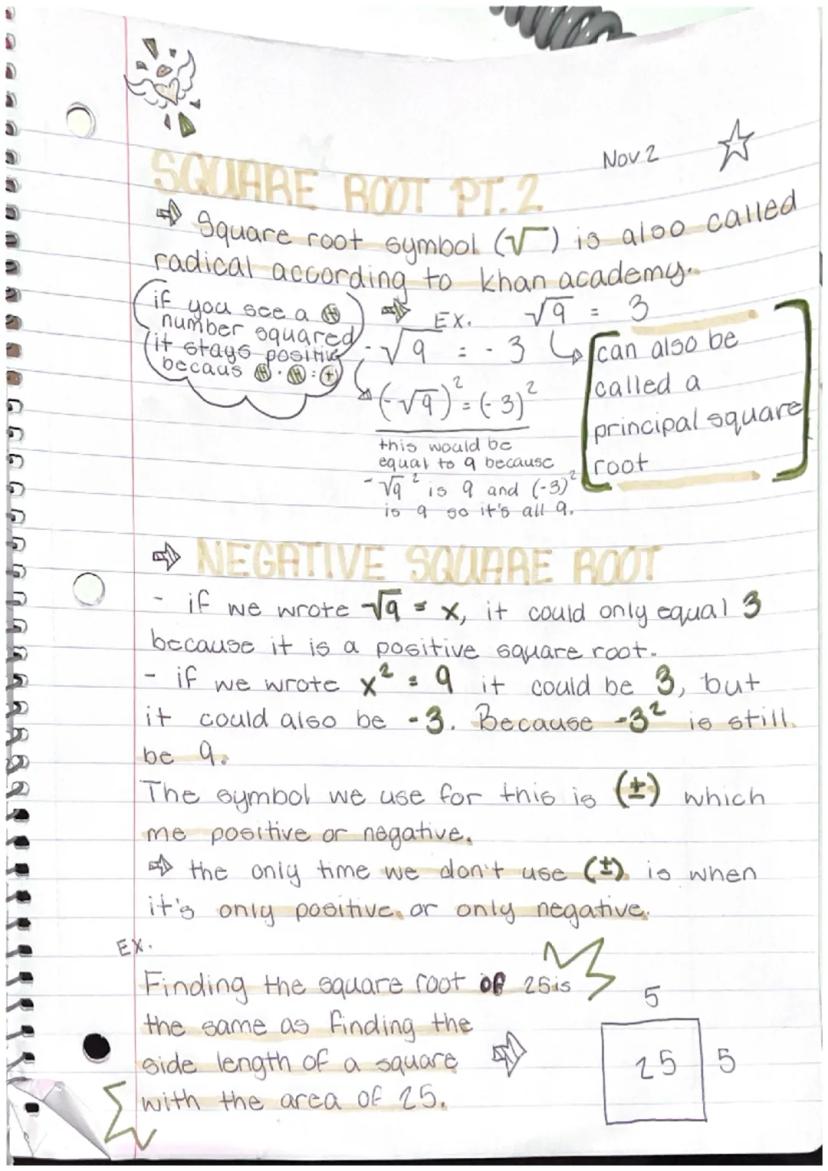 Nov. 2
SQUARE ROOT PT. 2
⇒ Square root symbol (√) is also called
radical according to khan academy.
if you see a (#)
number squared
it stays positiv
becaus (#) · (#) = (+)
⇒ EX. √9 = 3
-√9 = -3
(-√9)² = (-3)²
this would be
equal to 9 because
-√9² is 9 and (-3)²
is 9 so it's all 9.
can also be
called a
principal square
root
⇒ NEGATIVE SQUARE ROOT
- if we wrote √9 = x, it could only equal 3
because it is a positive square root.
- if we wrote x² = 9 it could be 3, but
it could also be -3. Because -3² is still
be 9.
The symbol we use for this is (±) which
me positive or negative.
⇒ the only time we don't use (±) is when
it's only positive, or only negative.
EX.
Finding the square root of 25 is
the same as finding the
side length of a square
with the area of 25.
⇒
5
25 5